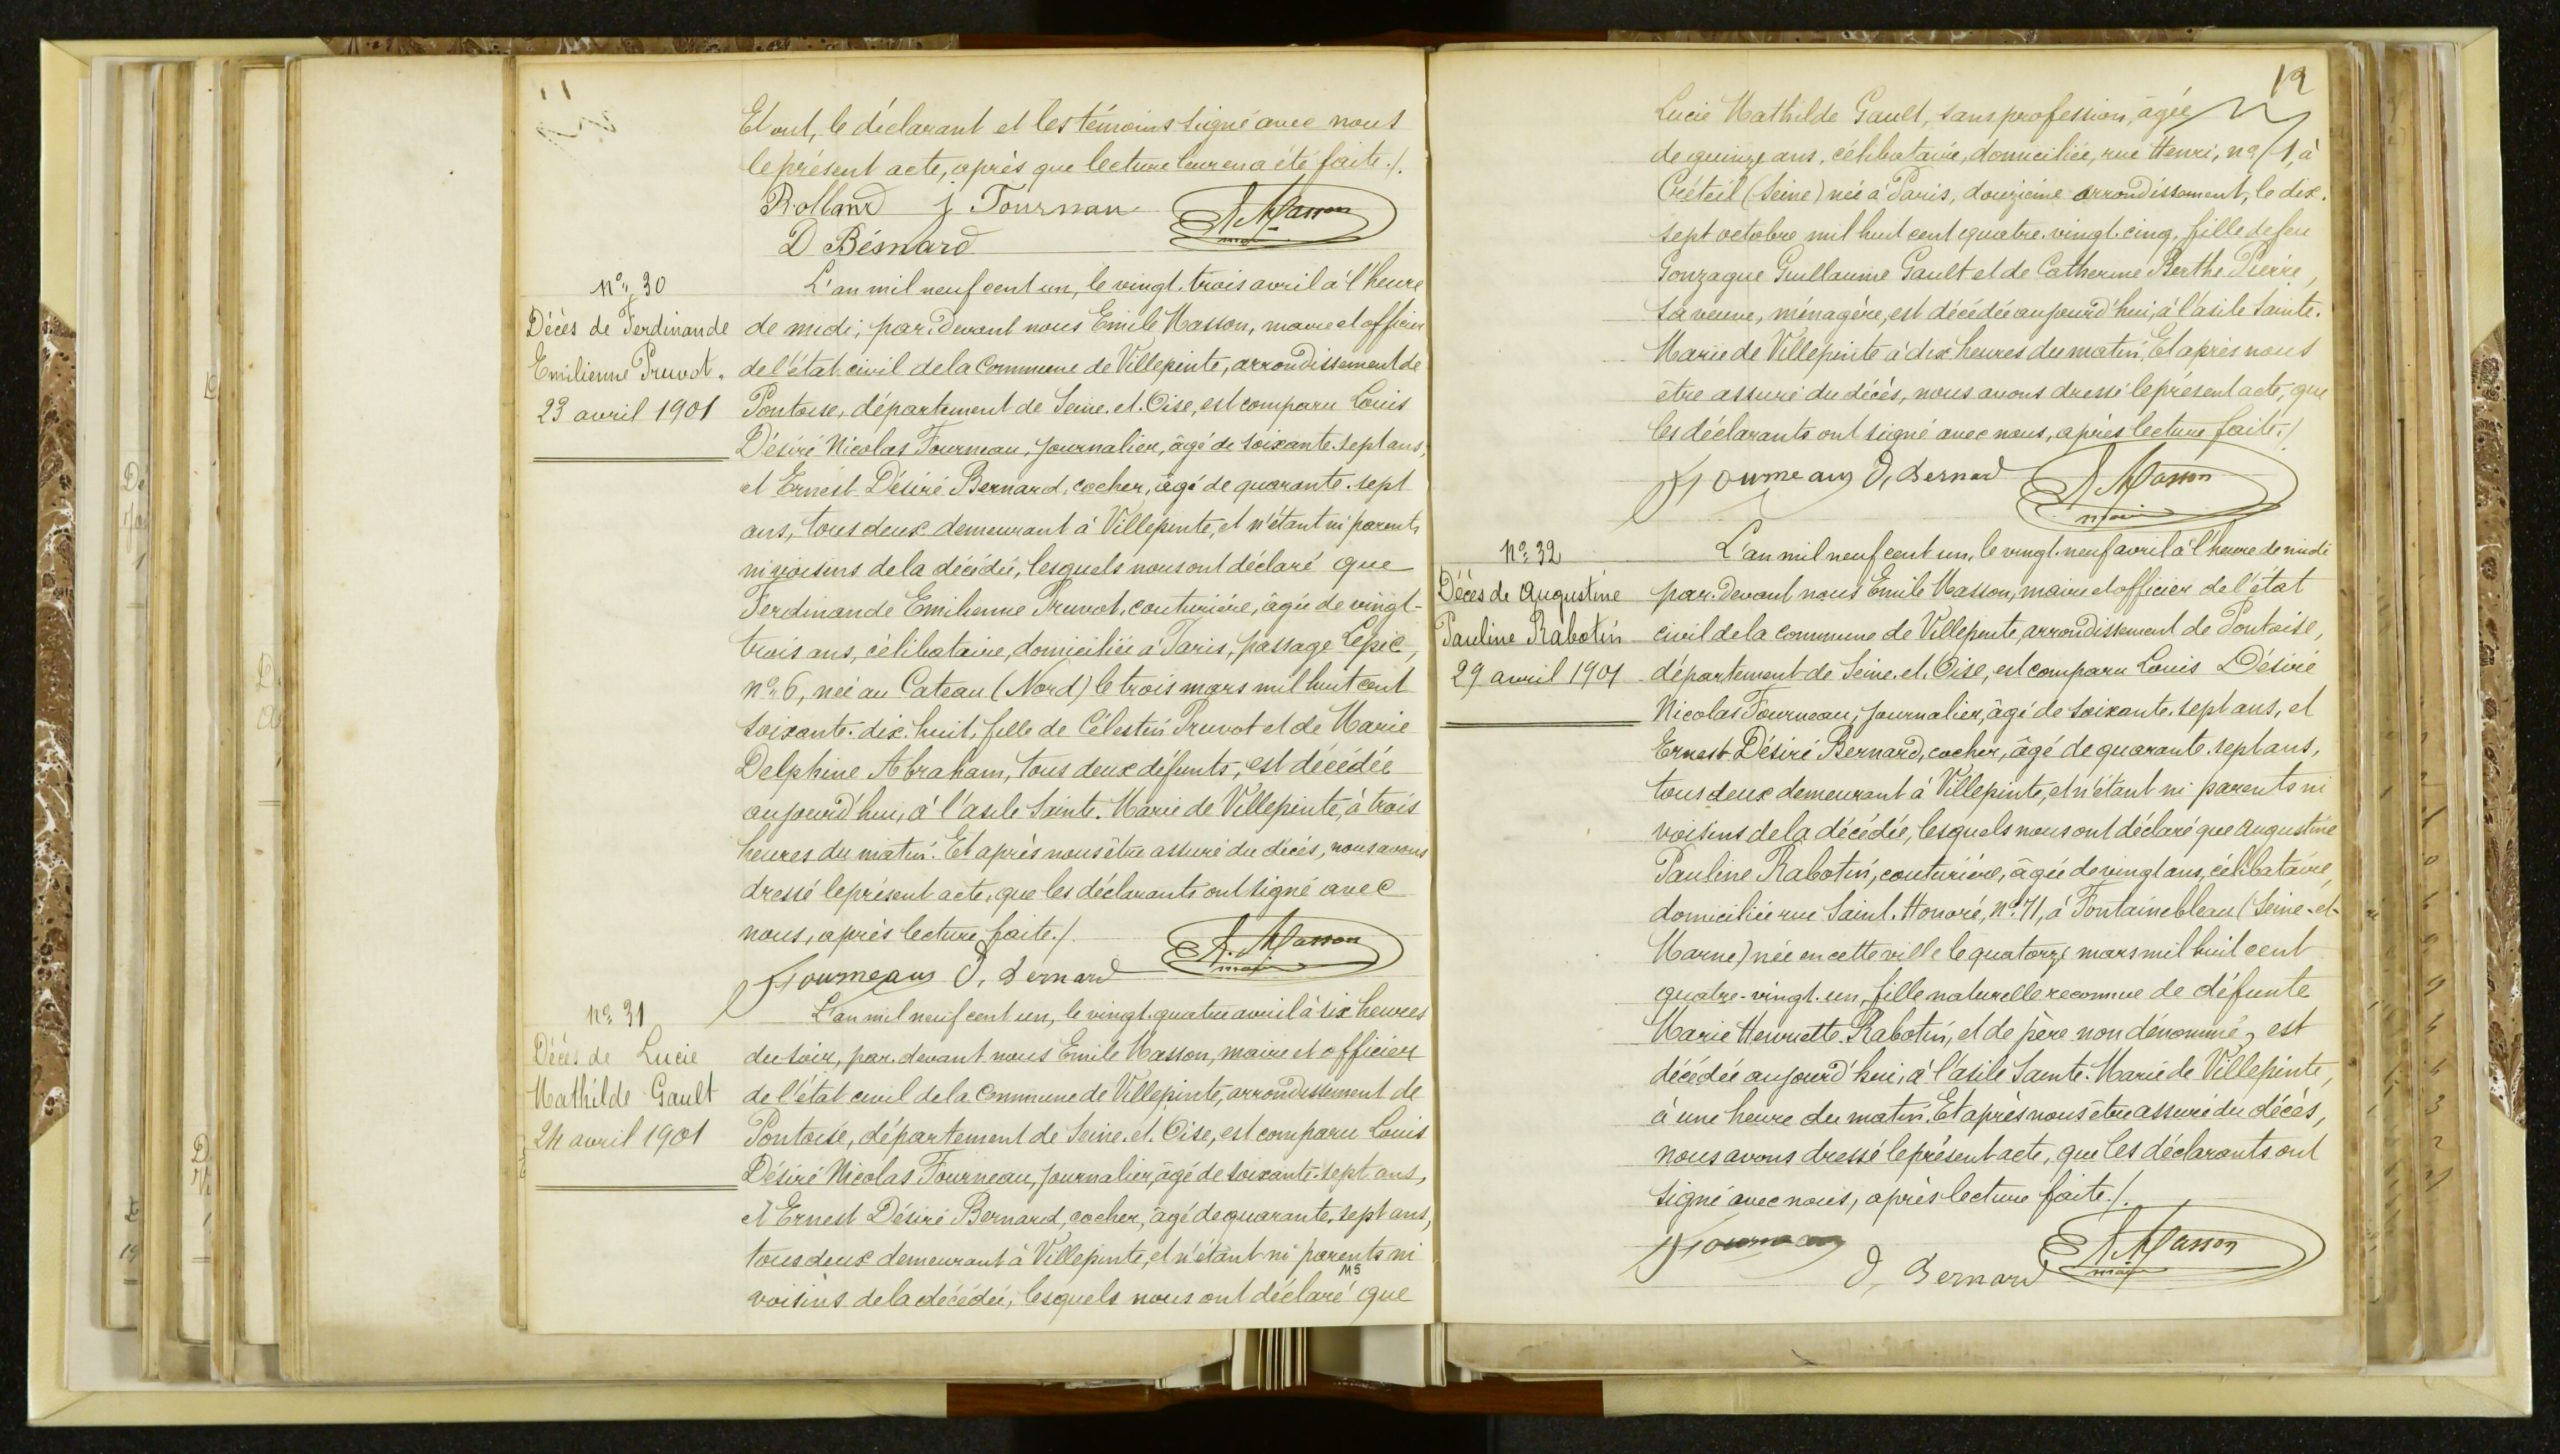 11
Et ont, le déclarant et les témoins signé avec nous
le présent acte, après que lecture leur en a été faite./.
Rolland j Tournan A. Masson
D Bésnard
N° 30
Décès de Ferdinande
Emilienne Pruvot.
23 avril 1901
L'an mil neuf cent un, le vingt-trois avril à l'heure
de midi; par-devant nous Emile Masson, maire et officier
de l'état civil de la Commune de Villepinte, arrondissement de
Pontoise, département de Seine-et-Oise, est comparu Louis
Désiré Nicolas Fourneau, journalier, âgé de soixante-sept ans,
et Ernest Désiré Bernard, cocher, âgé de quarante-sept
ans, tous deux demeurant à Villepinte, et n'étant ni parents
ni voisins de la décédée, lesquels nous ont déclaré que
Ferdinande Emilienne Pruvot, couturière, âgée de vingt-
trois ans, célibataire, domiciliée à Paris, passage Lepic,
n° 6, née au Cateau (Nord) le trois mars mil huit cent
soixante-dix-huit, fille de Célestin Pruvot et de Marie
Delphine Abraham, tous deux défunts, est décédée
aujourd'hui, à l'asile Sainte-Marie de Villepinte, à trois
heures du matin. Et après nous être assuré du décès, nous avons
dressé le présent acte, que les déclarants ont signé avec
nous, après lecture faite./.
Fourneaux D, Bernard A. Masson
maire
N° 31
Décès de Lucie
Mathilde Gault
24 avril 1901
L'an mil neuf cent un, le vingt-quatre avril à six heures
du soir, par-devant nous Emile Masson, maire et officier
de l'état civil de la Commune de Villepinte, arrondissement de
Pontoise, département de Seine-et-Oise, est comparu Louis
Désiré Nicolas Fourneau, journalier, âgé de soixante-sept ans,
et Ernest Désiré Bernard, cocher, âgé de quarante-sept ans,
tous deux demeurant à Villepinte, et n'étant ni parents ni
voisins de la décédée, lesquels nous ont déclaré que
12
Lucie Mathilde Gault, sans profession, âgée
de quinze ans, célibataire, domiciliée, rue Henri, n° 1, à
Créteil (Seine) née à Paris, douzième arrondissement, le dix-
sept octobre mil huit cent quatre-vingt-cinq, fille de feu
Gonzague Guillaume Gault et de Catherine Berthe Pierre,
sa veuve, ménagère, est décédée aujourd'hui, à l'asile Sainte-
Marie de Villepinte à dix heures du matin. Et après nous
être assuré du décès, nous avons dressé le présent acte, que
les déclarants ont signé avec nous, après lecture faite./.
Fourneaux D, Bernard A. Masson
maire
N° 32
Décès de Augustine
Pauline Rabotin
29 avril 1901
L'an mil neuf cent un, le vingt-neuf avril à l'heure de midi
par-devant nous Emile Masson, maire et officier de l'état
civil de la commune de Villepinte, arrondissement de Pontoise,
département de Seine-et-Oise, est comparu Louis Désiré
Nicolas Fourneau, journalier, âgé de soixante-sept ans, et
Ernest Désiré Bernard, cocher, âgé de quarante-sept ans,
tous deux demeurant à Villepinte, et n'étant ni parents ni
voisins de la décédée, lesquels nous ont déclaré que Augustine
Pauline Rabotin, couturière, âgée de vingt ans, célibataire,
domiciliée rue Saint-Honoré, n° 71, à Fontainebleau (Seine-et-
Marne) née en cette ville le quatorze mars mil huit cent
quatre-vingt-un, fille naturelle reconnue de défunte
Marie Henriette Rabotin, et de père non dénommé, est
décédée aujourd'hui, à l'asile Sainte-Marie de Villepinte,
à une heure du matin. Et après nous être assuré du décès,
nous avons dressé le présent acte, que les déclarants ont
signé avec nous, après lecture faite./.
D, Bernard A. Masson
maire